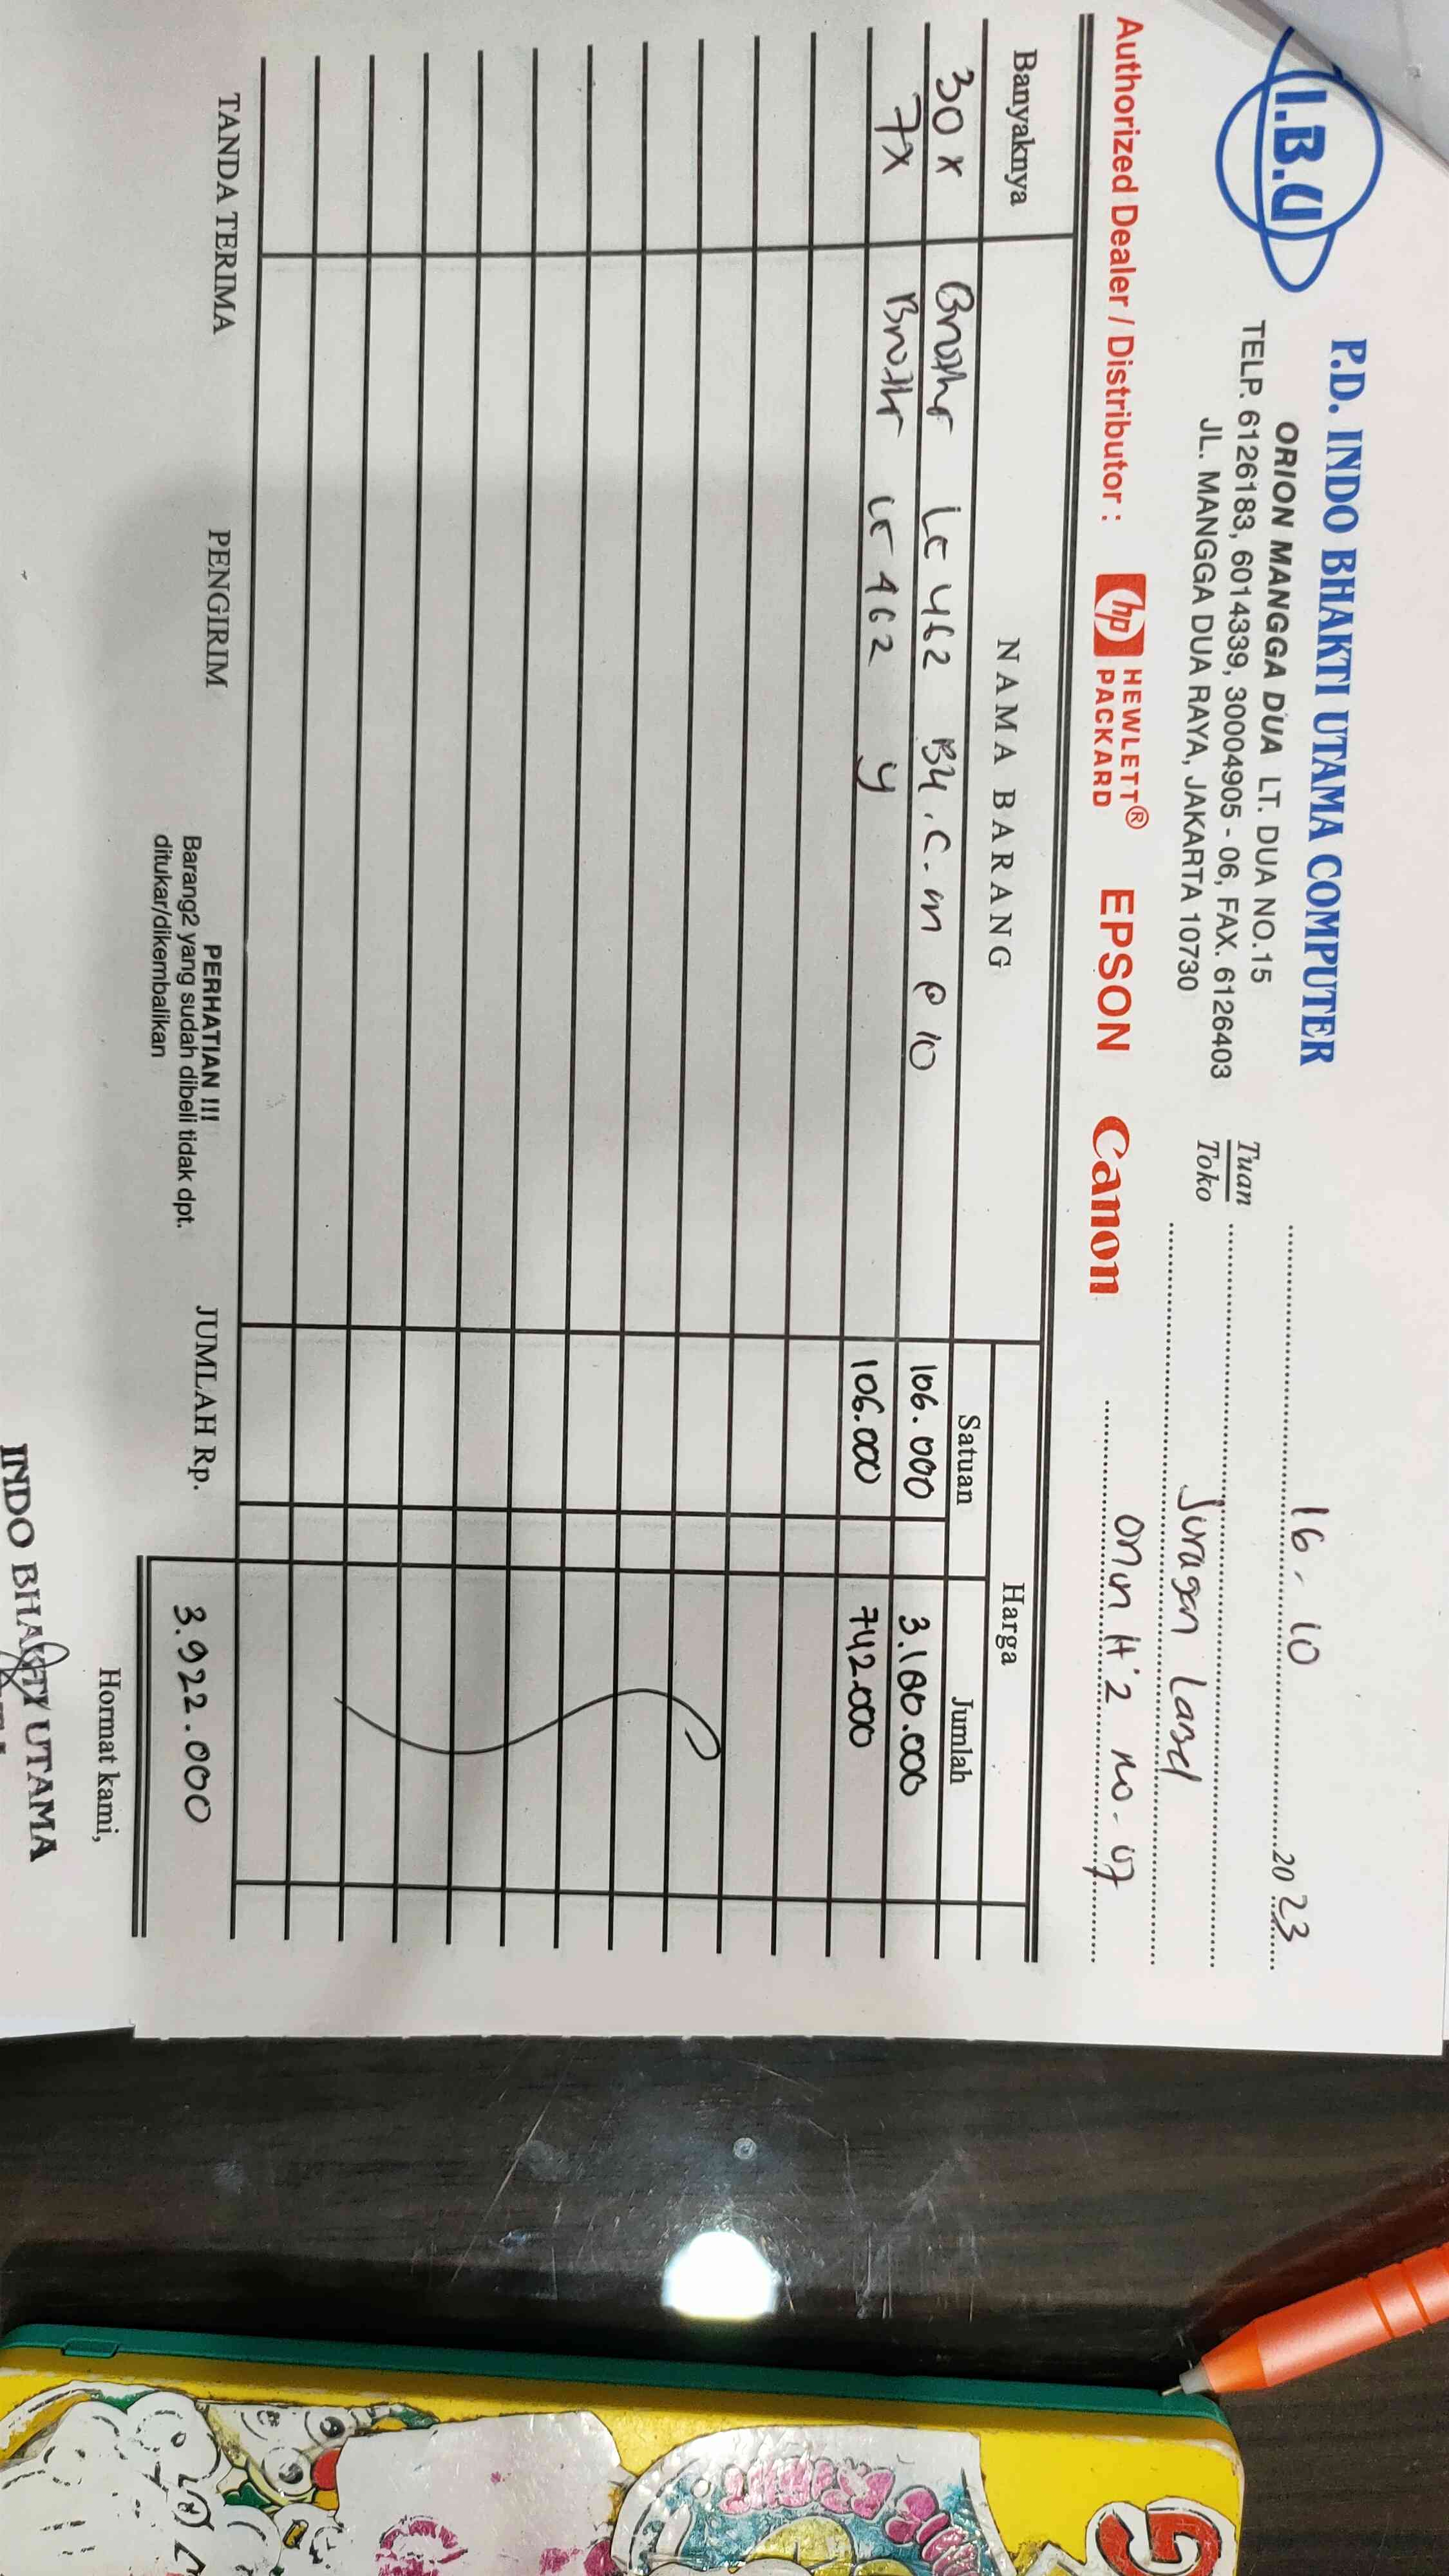 I.B.U
P.D. INDO BHAKTI UTAMA COMPUTER
ORION MANGGA DUA LT. DUA NO.15
TELP. 6126183, 6014339, 30004905 - 06, FAX. 6126403
JL. MANGGA DUA RAYA, JAKARTA 10730
16 - 10 2023
Tuan
Toko
Juragan Laser
Authorized Dealer / Distributor : hp HEWLETT® PACKARD EPSON Canon
H'2 no-
Banyaknya NAMA BARANG Harga
Satuan Jumlah
30 x Brother LC 462 C. M @ 10 106.000 3.180.000
7x Brother LC 462 Y 106.000 742.000
TANDA TERIMA PENGIRIM JUMLAH Rp. 3.922.000
PERHATIAN !!!
Barang2 yang sudah dibeli tidak dpt.
ditukar/dikembalikan
Hormat kami,
INDO BHAKTI UTAMA